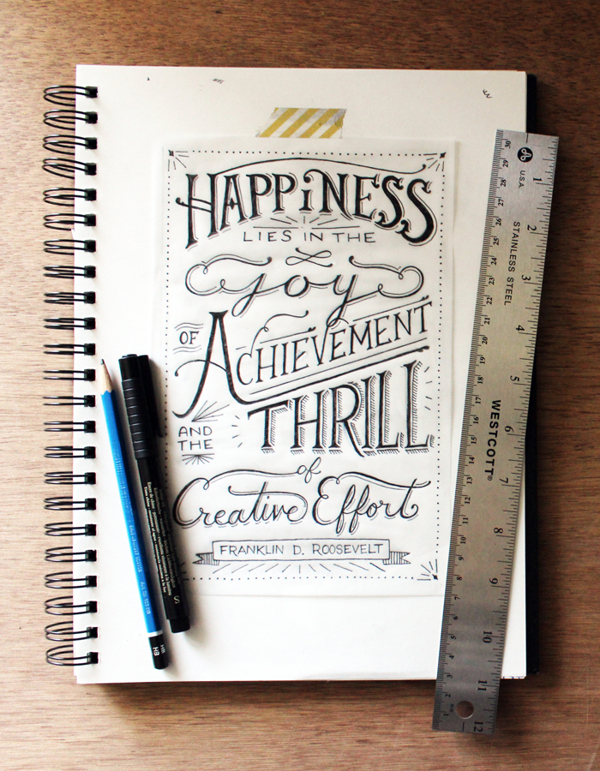 HAPPiNESS
LIES IN THE
Joy
OF ACHIEVEMENT
AND THE THRILL
of
Creative Effort
FRANKLIN D. ROOSEVELT
U.S.A.
STAINLESS STEEL
WESTCOTT®
1
2
3
4
5
6
7
8
9
10
11
12
S
HB